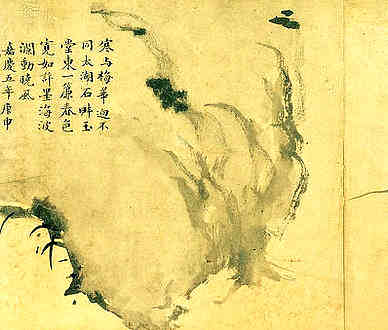 寒与梅華迥不
同太湖石畔玉
東一簾春色
寛如許墨海波
瀾動曉風
嘉慶五年庚申